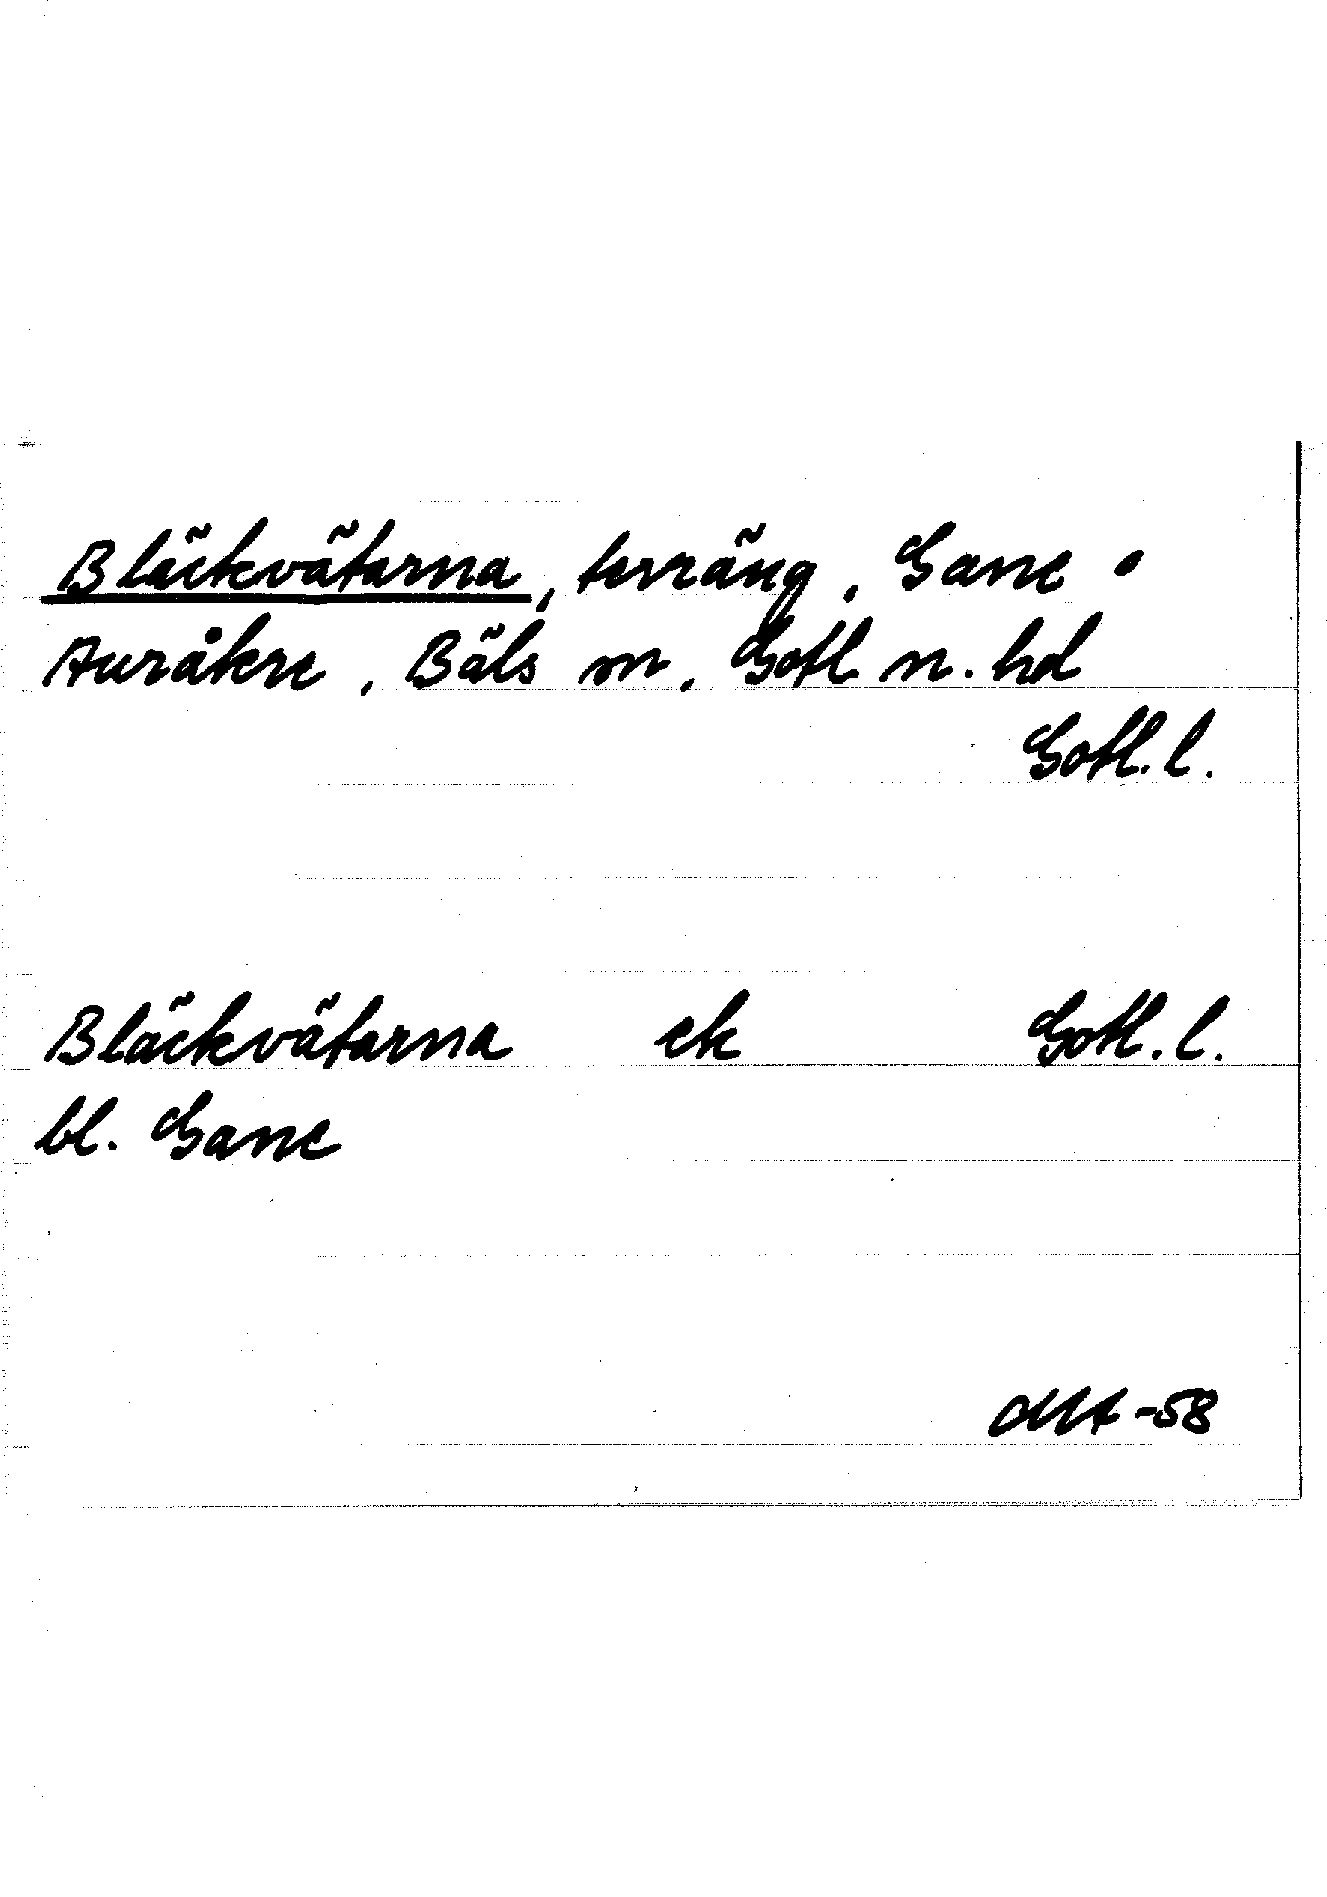 Bläckvätarna, terräng, Gane o
Auråkre, Bäls sn, Gotl n. hd
Gotl. l.
Bläckvätarna ek Gotl. l.
bl. Gane
-58